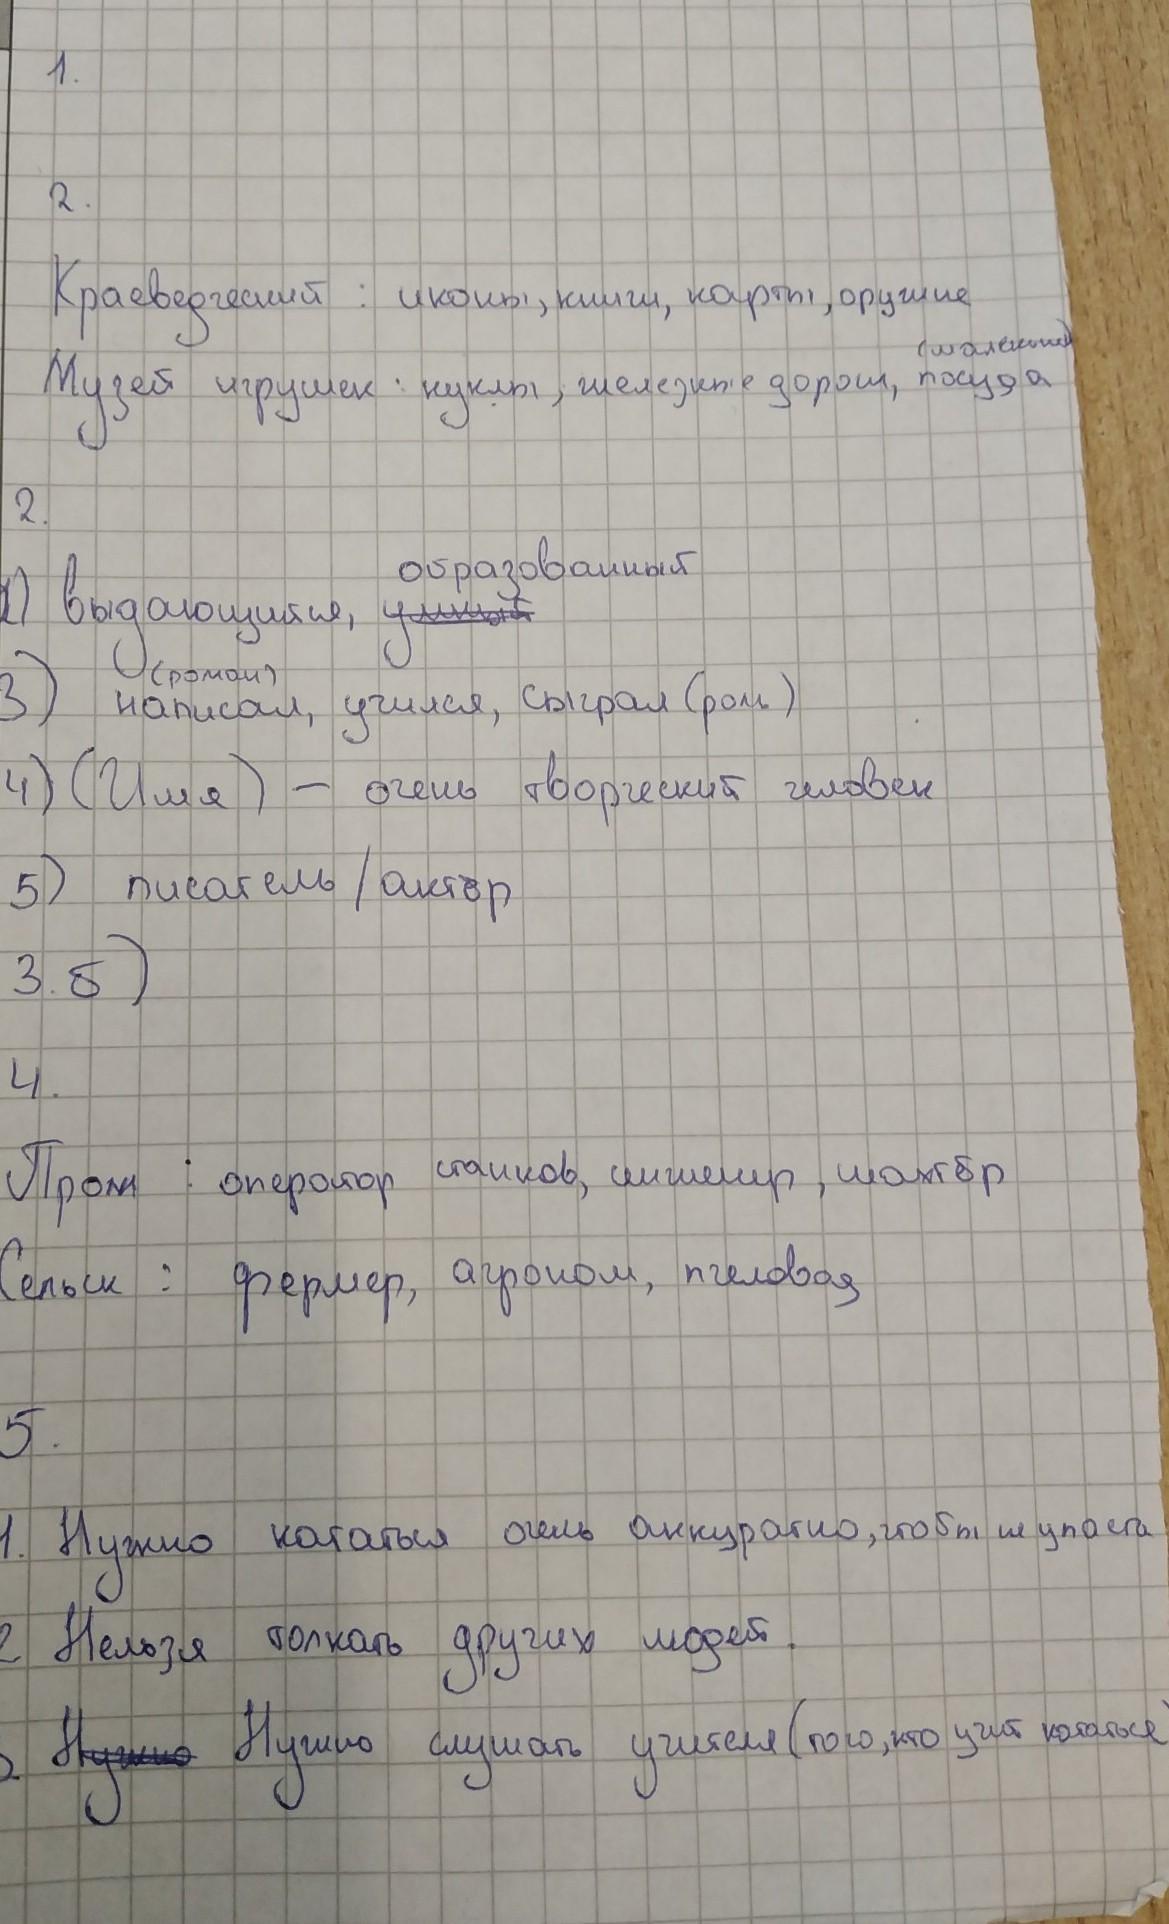 1.
2.
Краеведческий : иконы, книги, карты, оружие
(маленькая)
Музей игрушек : куклы, железные дороги, посуда
2.
образованный
2) выдающийся, умный
(роман)
3) написал, учился, сыграл (роль)
4) (Имя) — очень творческий человек
5) писатель / актёр
3. б)
4.
Пром : оператор станков, инженер, шахтёр
Сельск : фермер, агроном, пчеловод
5.
1. Нужно кататься очень аккуратно, чтобы не упаста
2 Нельзя толкать других людей.
3 Нужно Нужно слушать учителя (того, кто учит кататься)